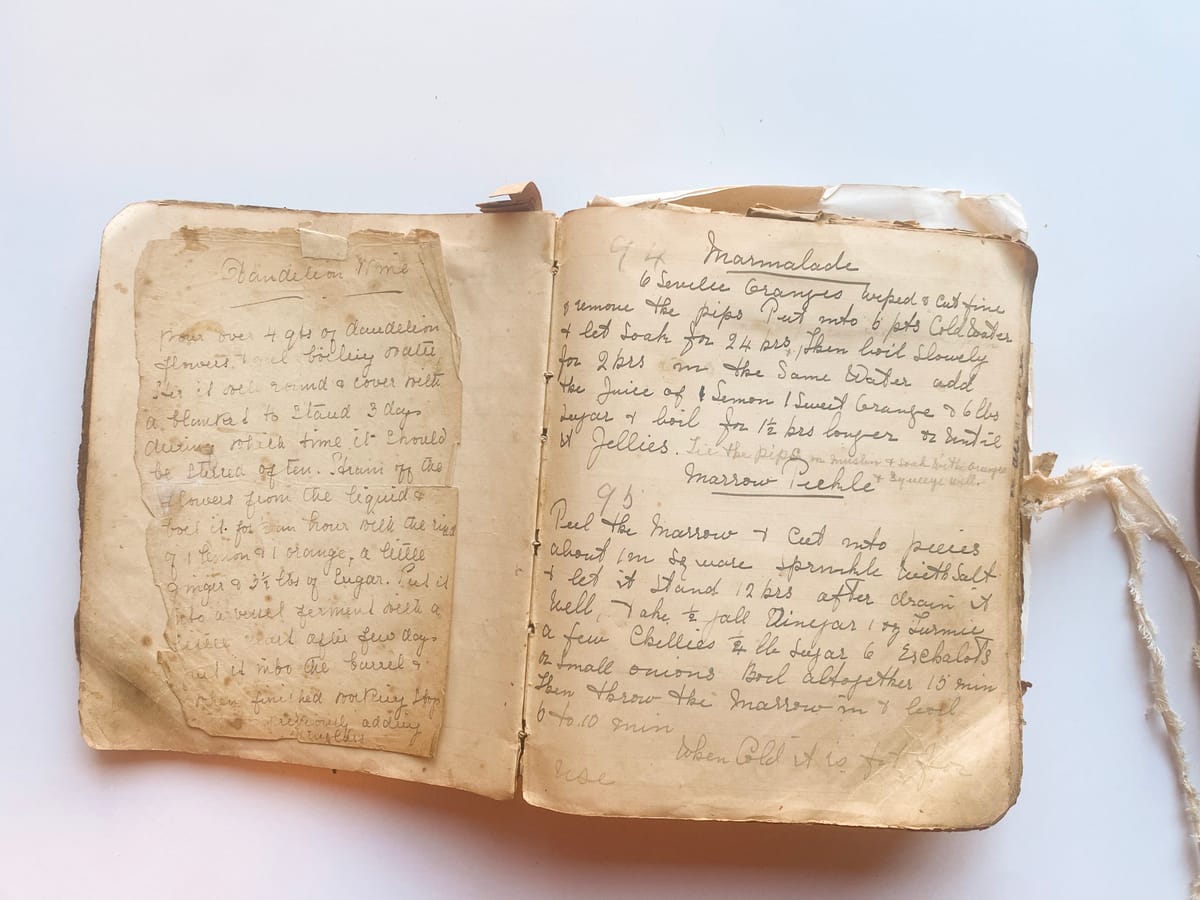 Dandelion Wine
Pour over 4 qts of dandelion
flowers 1 gal boiling water
Stir it well round & cover with
a blanket to Stand 3 days
during which time it Should
be stirred often. Strain off the
flowers from the liquid &
boil it for ½ an hour with the rind
of 1 lemon & 1 orange, a little
ginger & 3½ lbs of Sugar. Put it
into a vessel ferment with a
little yeast after few days
put it into the barrel &
when finished working stop
previously adding
94
Marmalade
6 Seville Oranges Wiped & Cut fine
& remove the pips Put into 6 pts Cold Water
& let Soak for 24 hrs, Then boil Slowly
for 2 hrs in the Same Water add
the Juice of 1 Lemon 1 Sweet Orange & 6 lbs
Sugar & boil for 1½ hrs longer or Until
it Jellies. Tie the pips in muslin & soak with oranges
& squeeze well.
Marrow Pickle
95
Peel the Marrow & Cut into pieces
about 1 in Square Sprinkle With Salt
& let it Stand 12 hrs after drain it
Well, Take ½ gall Vinegar 1 oz Turmic
a few Chillies ½ lb Sugar 6 Eschalots
or Small onions Boil altogether 15 min
Then throw the Marrow in & boil
6 to 10 min
When Cold it is fit for
use